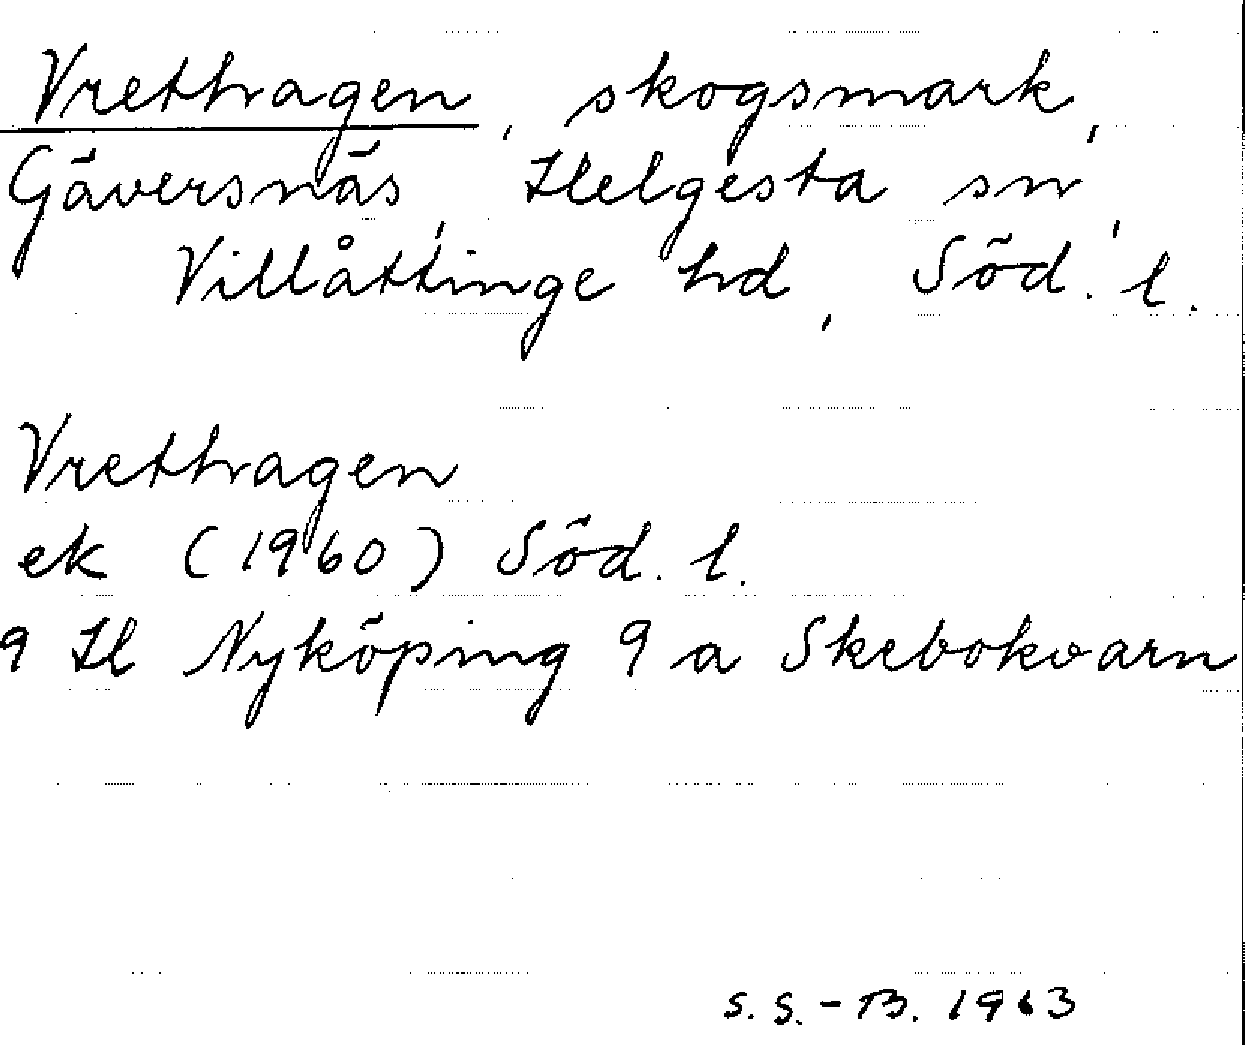 Vrethagen, skogsmark,
Gäversnäs, Helgesta sn,
Villåttinge hd, Söd. l.
Vrethagen
ek (1960) Söd. l.
9 H Nyköping 9 a Skebokvarn
S. S.-B. 1963